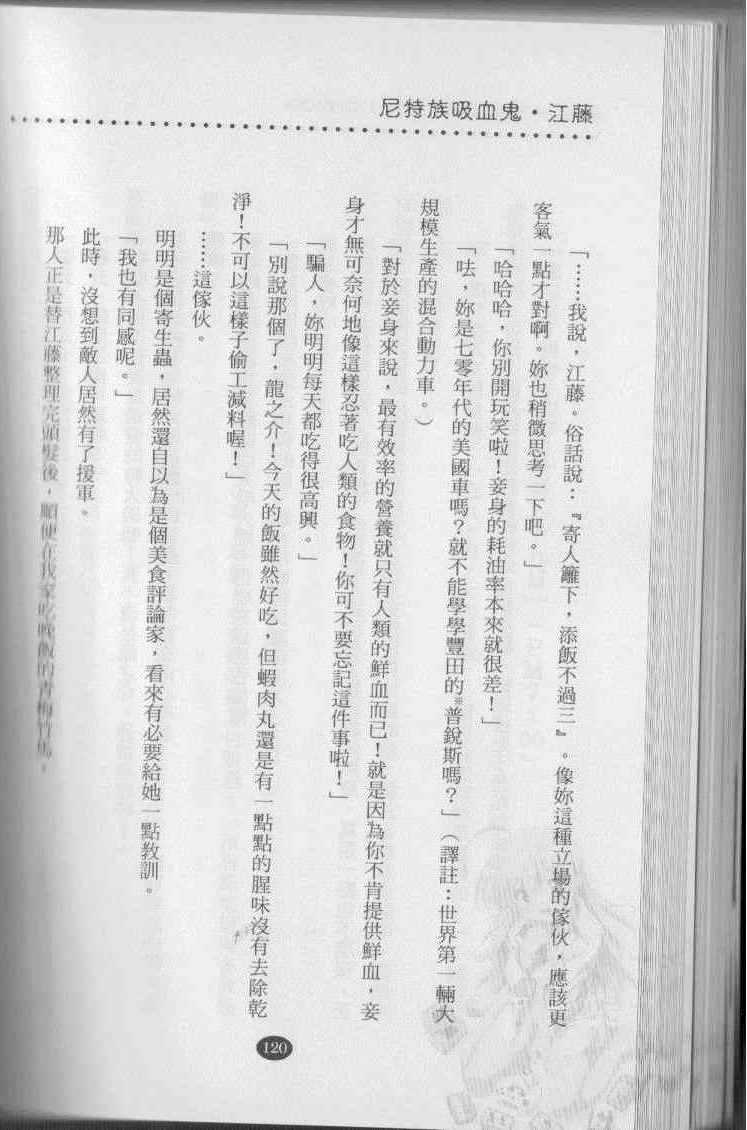 尼特族吸血鬼・江藤
「……我說，江藤。俗話說：『寄人籬下，添飯不過三』。像妳這種立場的傢伙，應該更
客氣一點才對啊。妳也稍微思考一下吧。」
「哈哈哈，你別開玩笑啦！妾身的耗油率本來就很差！」
「呿，妳是七零年代的美國車嗎？就不能學學豐田的※普銳斯嗎？」（譯註：世界第一輛大
規模生產的混合動力車。）
「對於妾身來說，最有效率的營養就只有人類的鮮血而已！就是因為你不肯提供鮮血，妾
身才無可奈何地像這樣忍著吃人類的食物！你可不要忘記這件事啦！」
「騙人，妳明明每天都吃得很高興。」
「別說那個了，龍之介！今天的飯雖然好吃，但蝦肉丸還是有一點點的腥味沒有去除乾
淨！不可以這樣子偷工減料喔！」
……這傢伙。
明明是個寄生蟲，居然還自以為是個美食評論家，看來有必要給她一點教訓。
「我也有同感呢。」
此時，沒想到敵人居然有了援軍。
那人正是替江藤整理完頭髮後，順便在我家吃晚飯的青梅竹馬。
120